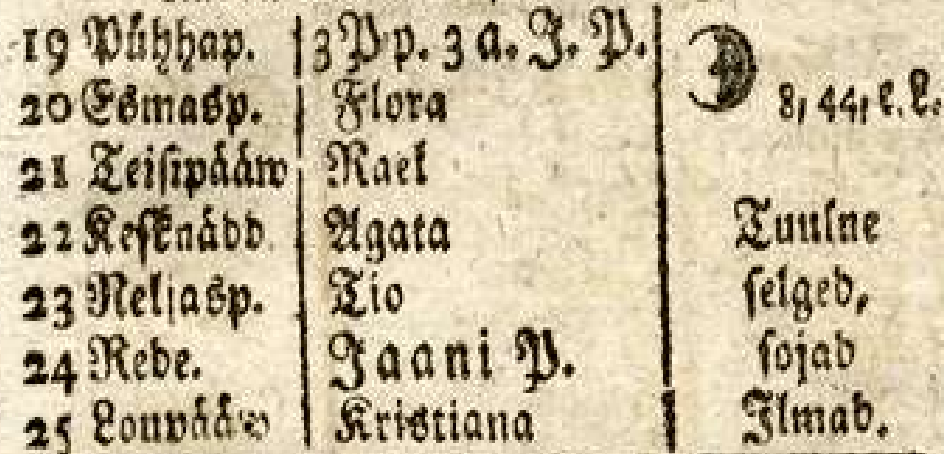 19 Pühhap. 3 Pp. 3 a. J. P. 8, 44, e. L.
20 Esmasp. Flora
21 Teisipääw Rael
22 Kesknädd. Agata Tuulne
23 Neljasp. Tio selged,
24 Rede. Jaani P. sojad
25 Loupääw Kristiana Ilmad.